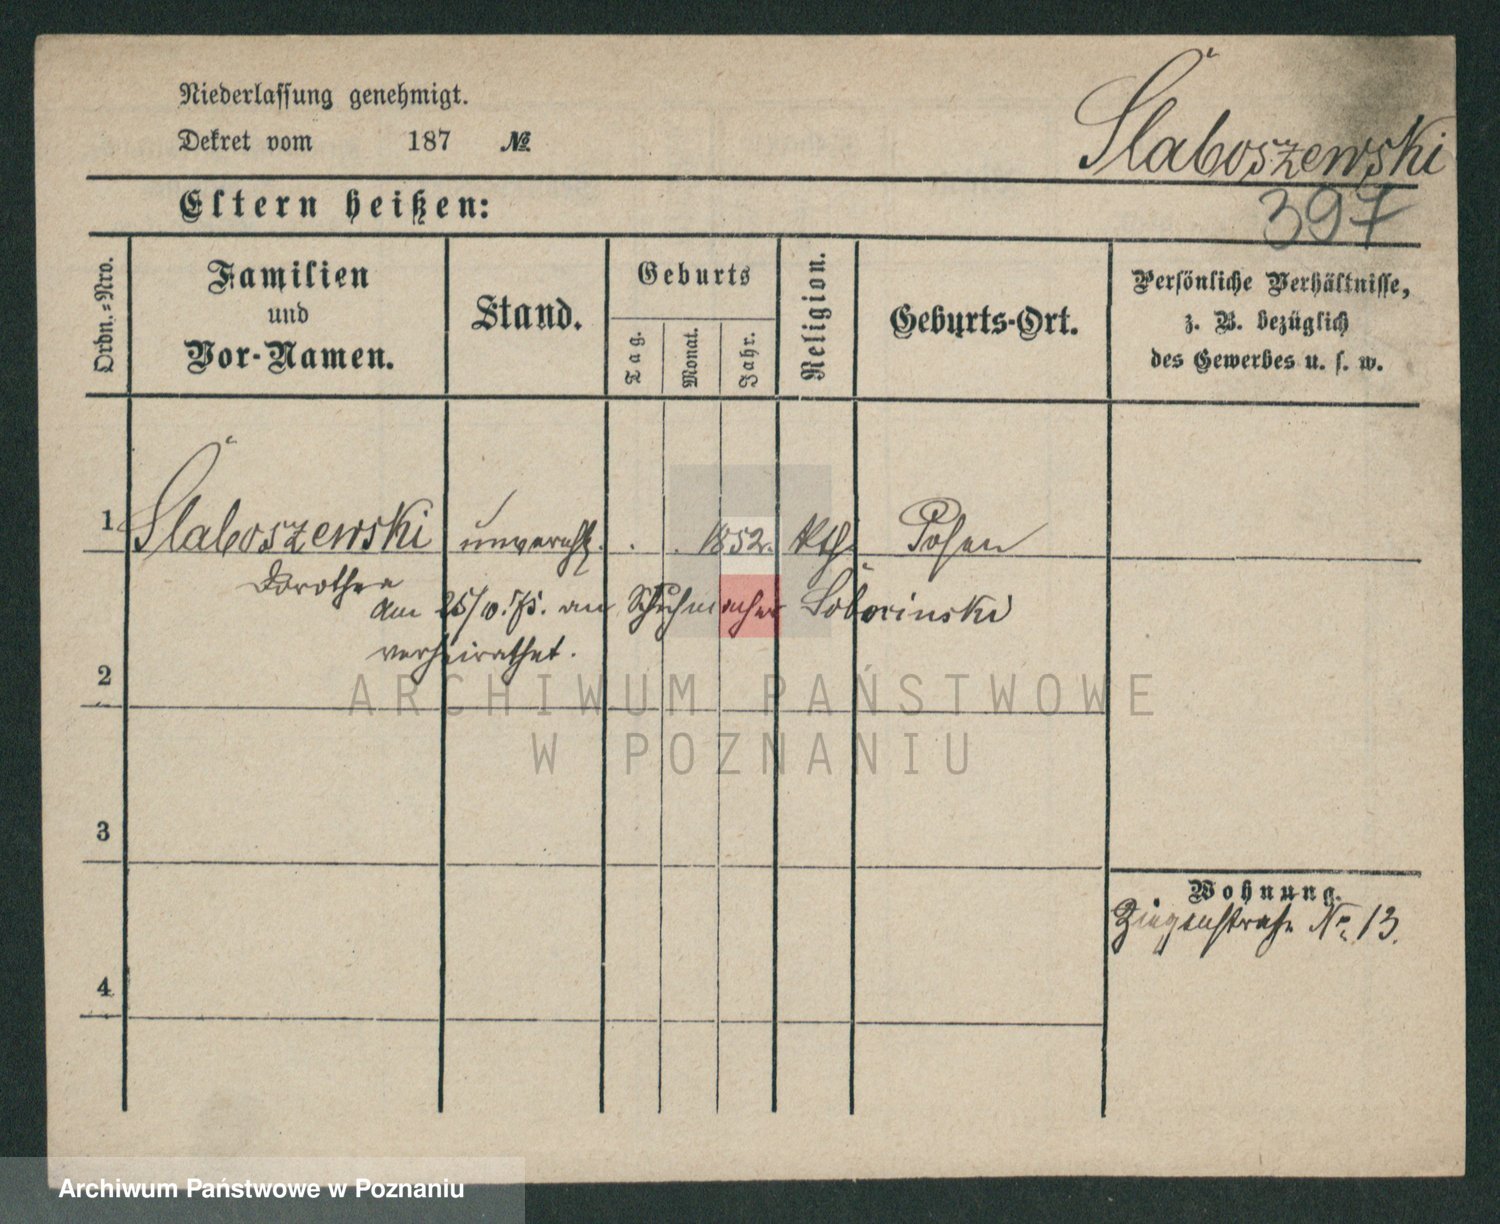 Niederlassung genehmigt.
Dekret vom 187 №
Slaboszewski
397
Eltern heißen:
Ordn.-Nro.
Familien
und
Vor-Namen.
Stand.
Geburts
Tag.
Monat.
Jahr.
Religion.
Geburts-Ort.
Persönliche Verhältnisse,
z. B. bezüglich
des Gewerbes u. s. w.
1 Slaboszewski unvereh. . . 1852. Kth. Posen
Dorothea
am 25/10. 75. an Schuhmacher
verheirathet.
2
3
4
Wohnung.
Ziegenstraße No. 13.
ARCHIWUM PAŃSTWOWE
W POZNANIU
Archiwum Państwowe w Poznaniu